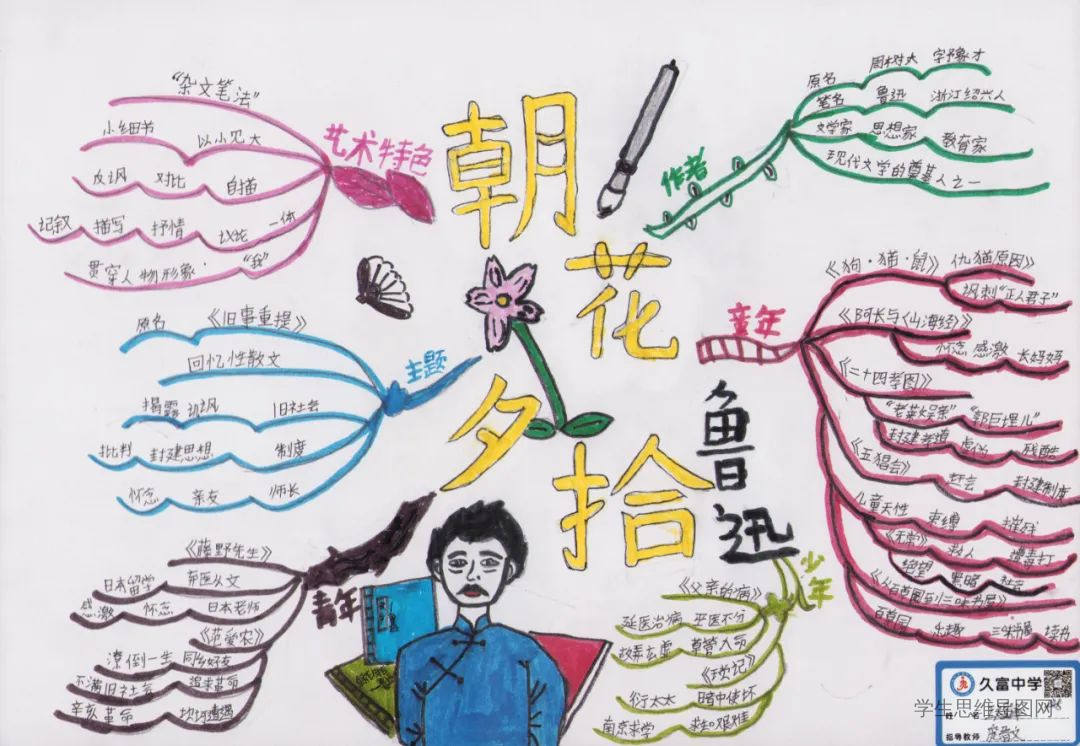 朝
花
夕
拾
鲁
迅
艺术特色
"杂文笔法"
小细节 以小见大
反讽 对比 白描
记叙 描写 抒情 议论 一体
贯穿人物形象·"我"
主题
原名 《旧事重提》
回忆性散文
揭露 讥讽 旧社会
批判 封建思想 制度
怀念 亲友 师长
青年
《藤野先生》
日本留学 弃医从文
感激 怀念 日本老师
《范爱农》
潦倒一生 同乡好友
不满旧社会 追求革命
辛亥革命 坎坷遭遇
作者
原名 周树人 字予象才
笔名 鲁迅 浙江绍兴人
文学家 思想家 教育家
现代文学的奠基人之一
童年
《狗·猫·鼠》 仇猫原因
讽刺"正人君子"
《阿长与《山海经》》
怀念 感激 长妈妈
《二十四孝图》
"老莱娱亲" "郭巨埋儿"
封建孝道 虚伪 残酷
《五猖会》 赶会 封建制度
儿童天性 束缚 摧残
《无常》 救人 遭毒打
绝望 黑暗 社会
《从百草园到三味书屋》
百草园 乐趣 三味书屋 读书
少年
《父亲的病》
延医治病 巫医不分
故弄玄虚 草菅人命
《琐记》
衍太太 暗中使坏
南京求学 艰难
久富中学
学生思维导图网
姓 名
指导教师